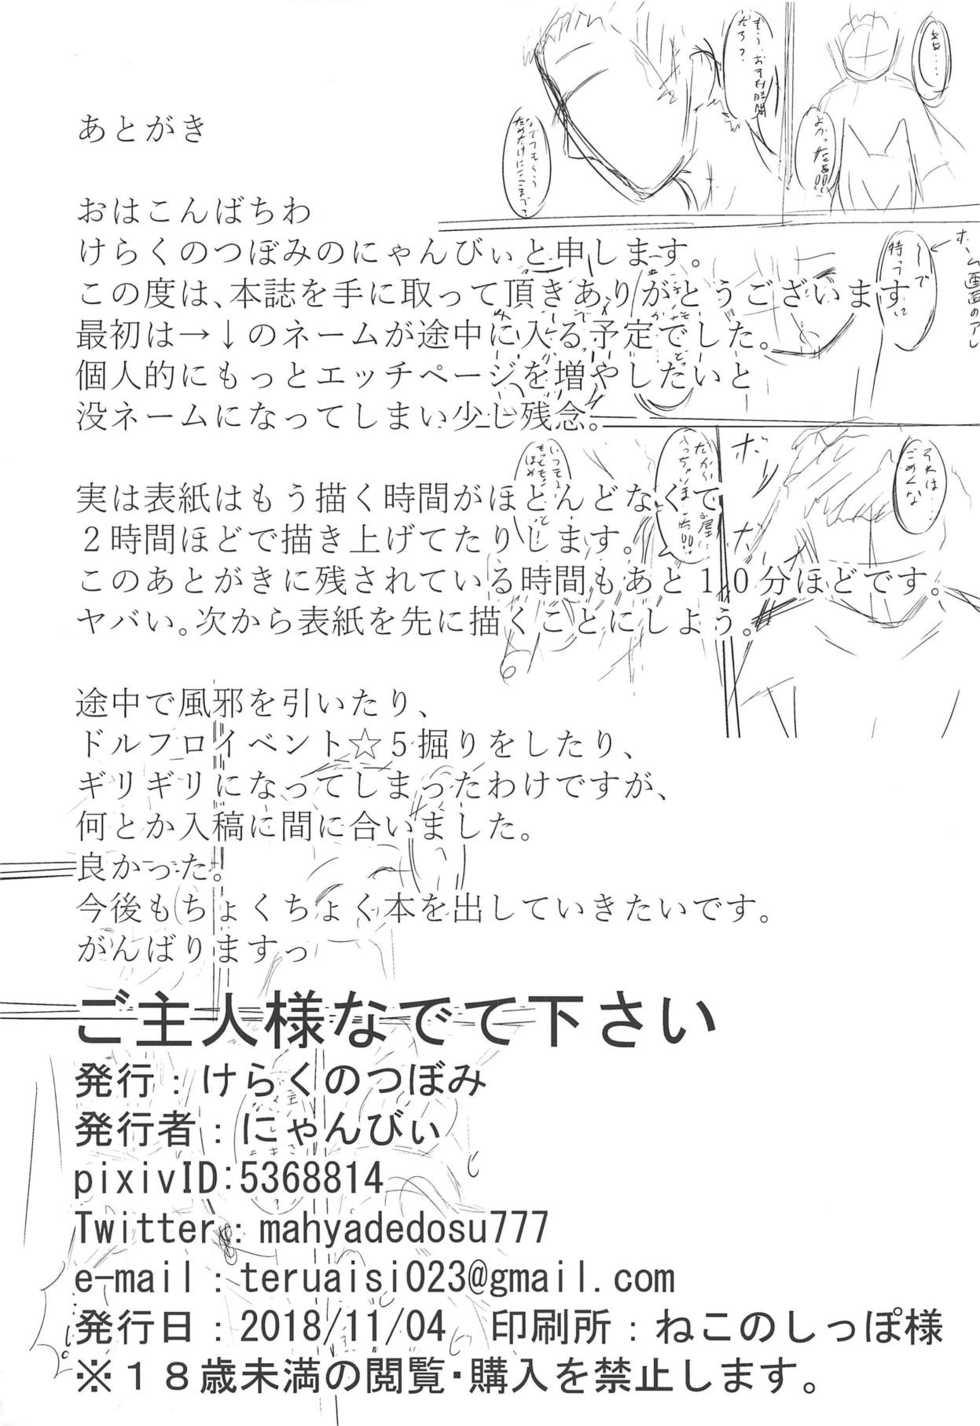 あとがき
おはこんばちわ
けらくのつぼみのにゃんびぃと申します。
この度は、本誌を手に取って頂きありがとうございます
最初は→↓のネームが途中に入る予定でした。
個人的にもっとエッチページを増やしたいと
没ネームになってしまい少し残念。
実は表紙はもう描く時間がほとんどなくて
２時間ほどで描き上げてたりします。
このあとがきに残されている時間もあと１０分ほどです。
ヤバい。次から表紙を先に描くことにしよう。
途中で風邪を引いたり、
ドルフロイベント☆５掘りをしたり、
ギリギリになってしまったわけですが、
何とか入稿に間に合いました。
良かった。
今後もちょくちょく本を出していきたいです。
がんばりますっ
ご主人様なでて下さい
発行：けらくのつぼみ
発行者：にゃんびぃ
pixivID:5368814
Twitter：mahyadedosu777
e-mail：teruaisi023@gmail.com
発行日：2018/11/04　印刷所：ねこのしっぽ様
※１８歳未満の閲覧・購入を禁止します。
もう、おすわり
だろ？
なでてもらう
ためだけにここまで？
それは…
ごめんな